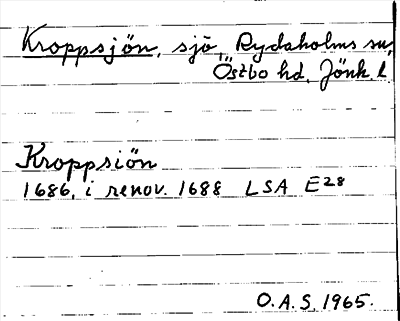 Kroppsjön, sjö, Rydaholms sn,
Östbo hd, Jönk. l.
Kroppsiön
1686, i renov. 1688 LSA E28
O.A.S. 1965.